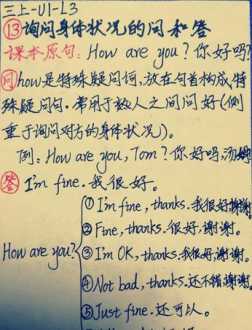 三上-U1-L3
⑬询问身体状况的问和答
课本原句: How are you? 你好吗?
问 how是特殊疑问词,放在句首构成特
殊疑问句。常用于数人之间问好(侧
重于询问对方的身体状况)。
例: How are you, Tom? 你好吗,汤姆
答 I'm fine. 我很好。
① I'm fine, thanks. 我很好谢谢
② Fine, thanks. 很好,谢谢。
How are you? ③ I'm OK, thanks. 我很好,谢谢。
④ Not bad, thanks. 还不错谢谢。
⑤ Just fine. 还可以。